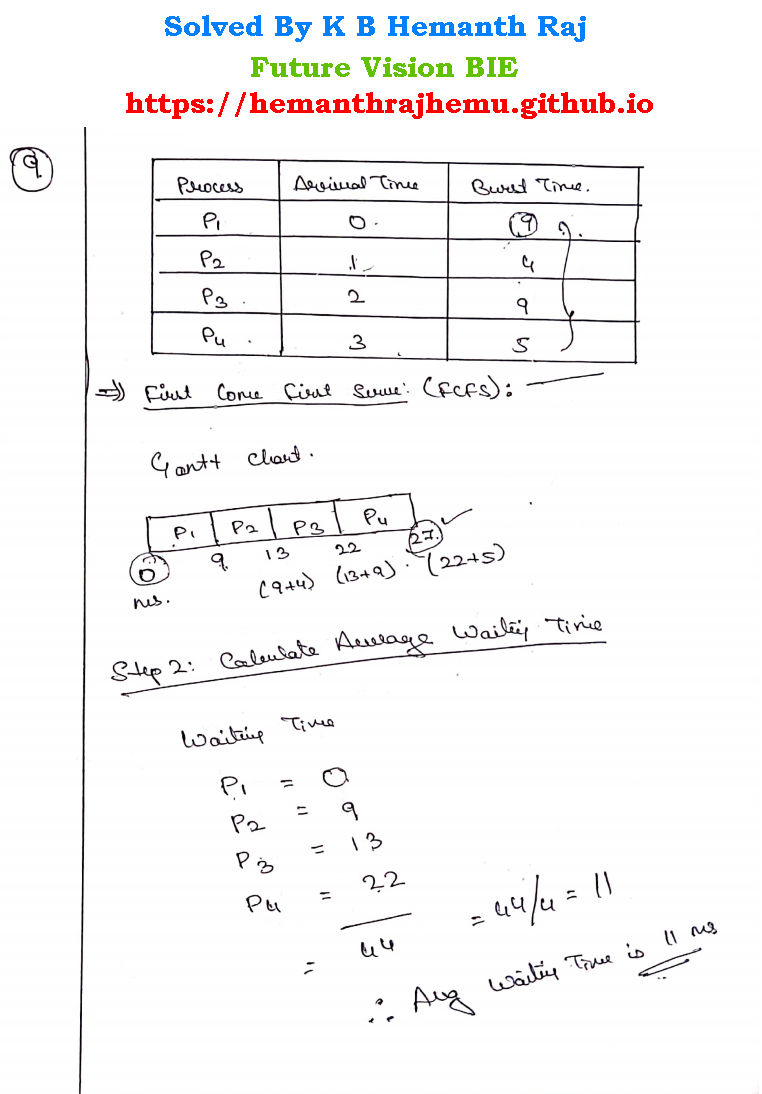 Solved By K B Hemanth Raj
Future Vision BIE
https://hemanthrajhemu.github.io
9
Process Arrival Time Burst Time.
P1 0. 9
P2 1 4
P3 2 9
P4 3 5
=> First Come First Serve: (FCFS):
Gantt Chart.
P1 P2 P3 P4
0 9 13 22 27.
ms. (9+4) (13+9) (22+5)
Step 2: Calculate Average Waiting Time
Waiting Time
P1 = 0
P2 = 9
P3 = 13
P4 = 22
= 44 = 44/4 = 11
∴ Avg Waiting Time is 11 ms